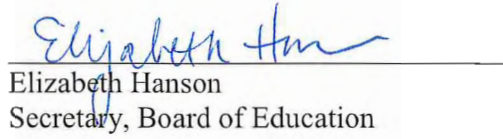 Elizabeth Han
Elizabeth Hanson
Secretary, Board of Education